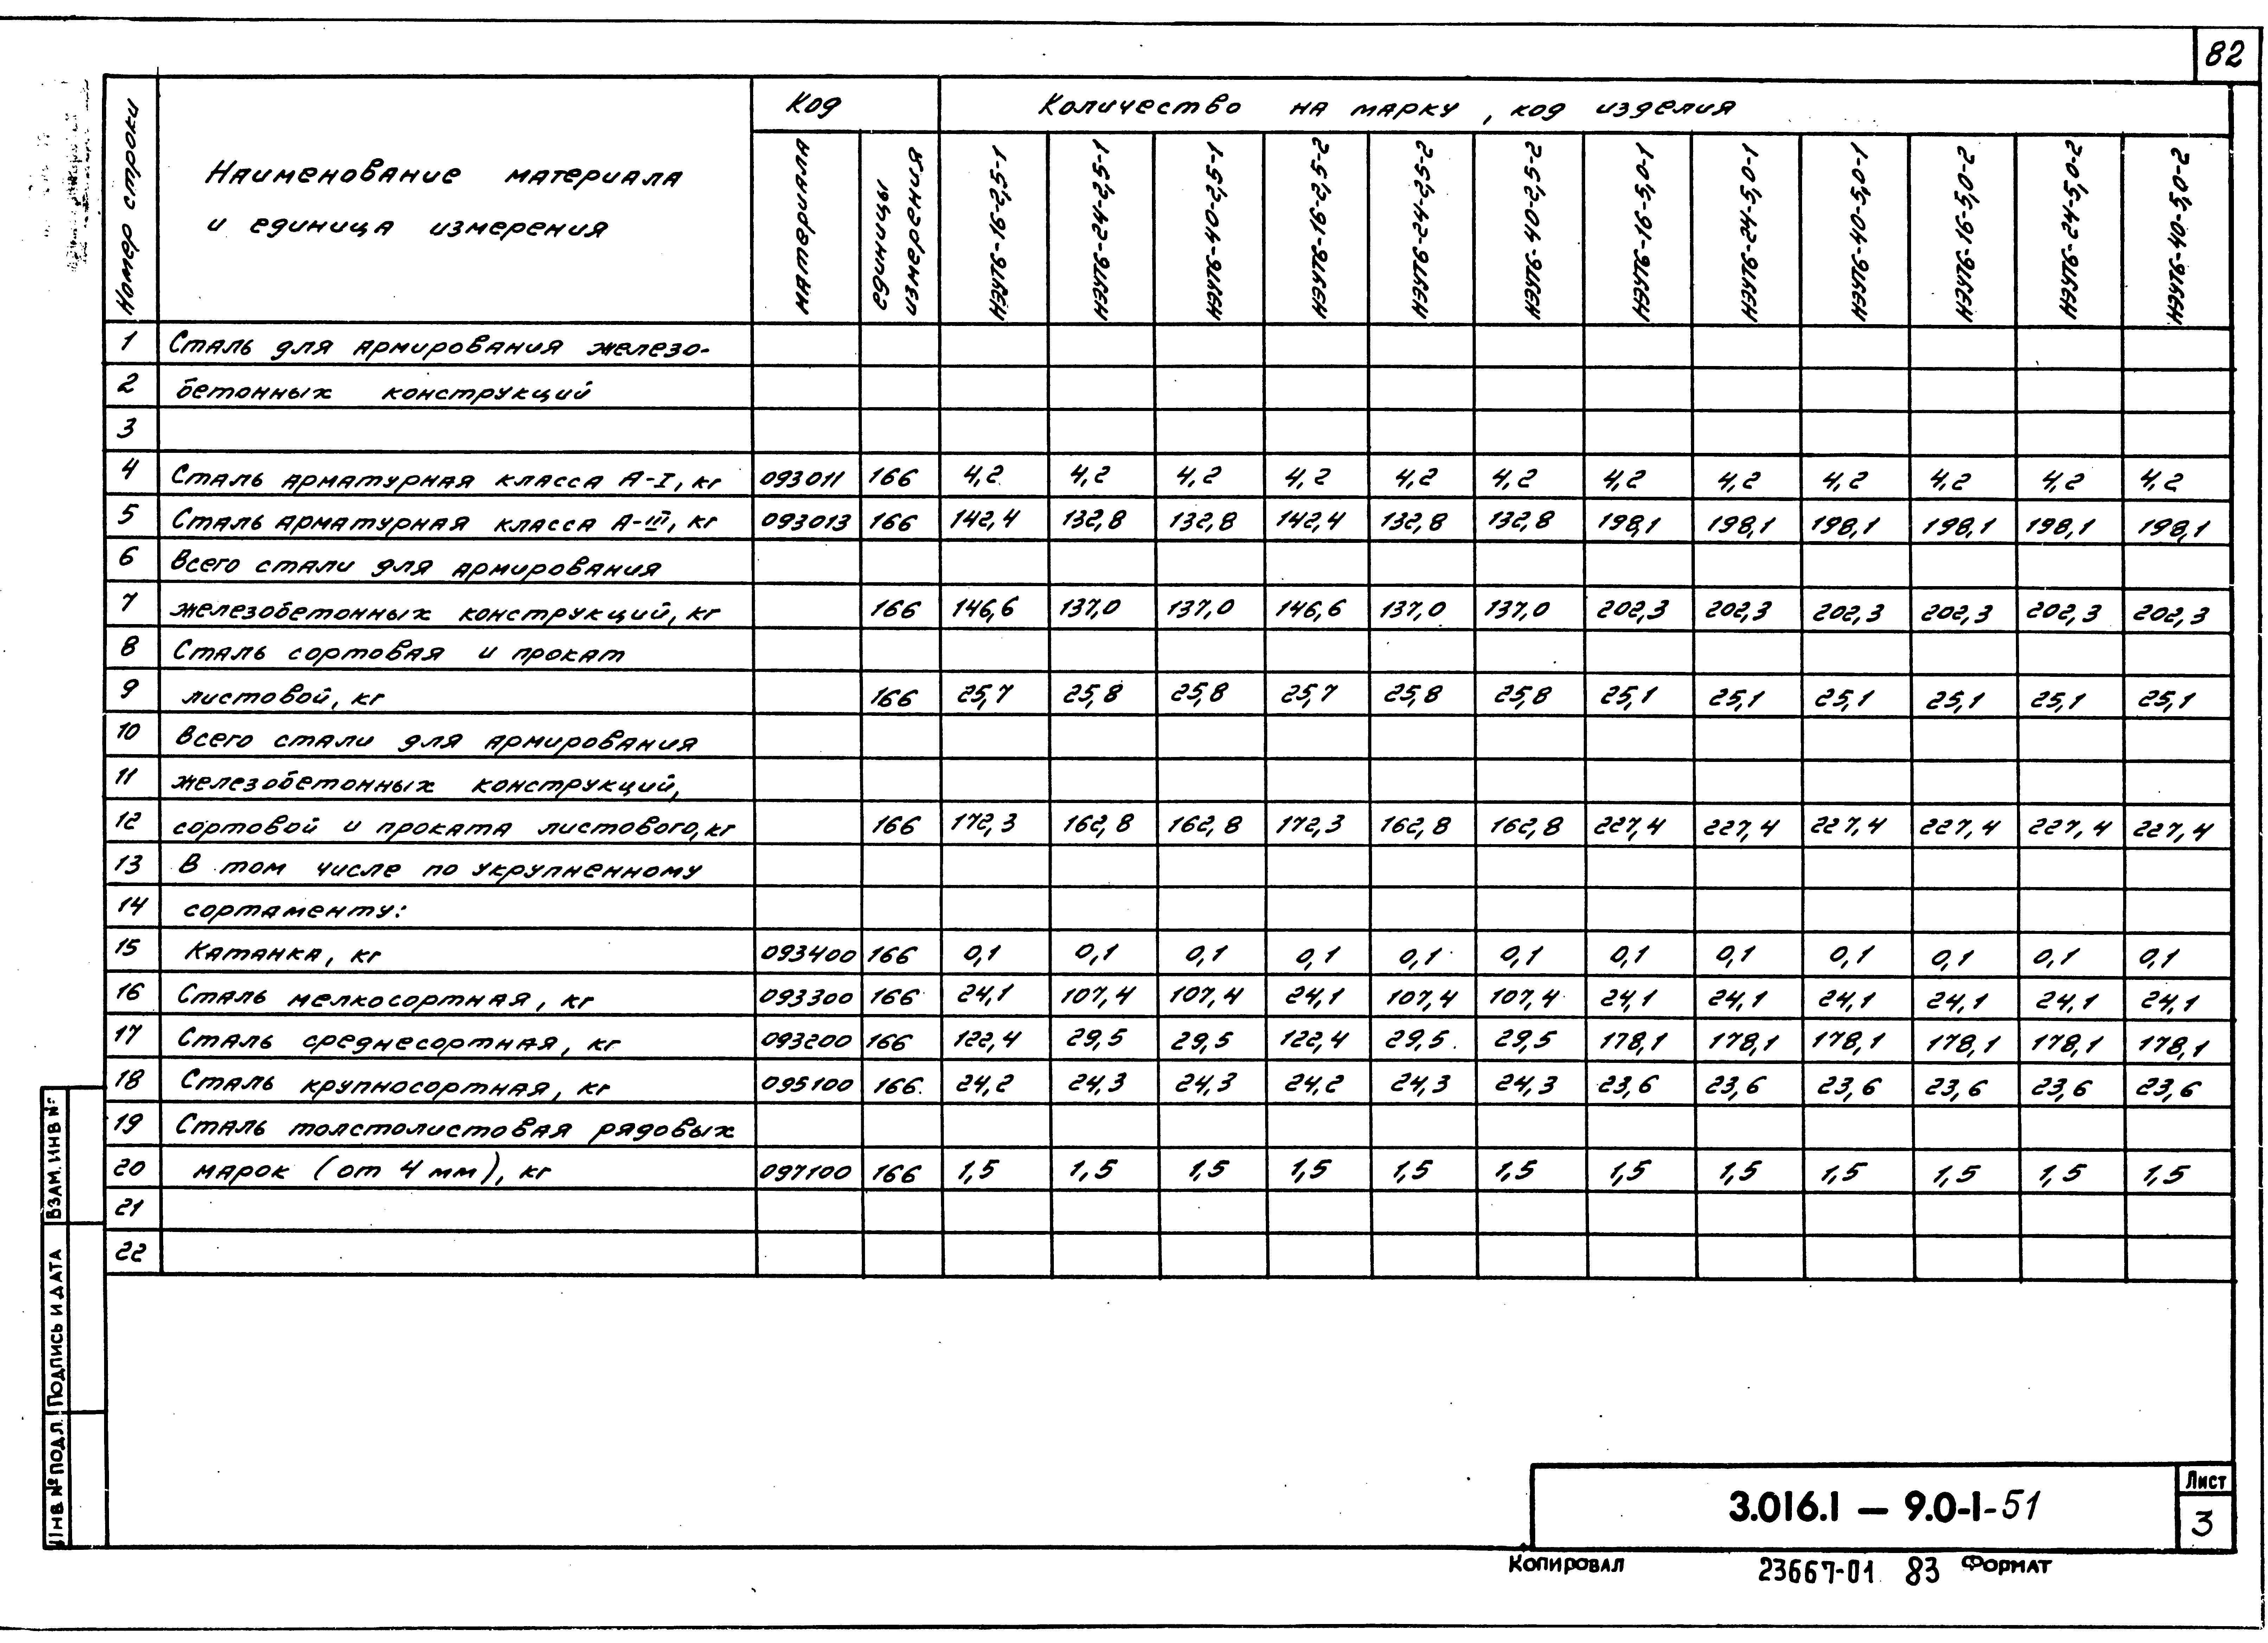 82
Номер строки
Наименование материала
и единица измерения
Код
Количество на марку, код изделия
материала
единицы
измерения
НЭУТ6-16-2,5-1
НЭУТ6-24-2,5-1
НЭУТ6-40-2,5-1
НЭУТ6-16-2,5-2
НЭУТ6-24-2,5-2
НЭУТ6-40-2,5-2
НЭУТ6-16-5,0-1
НЭУТ6-24-5,0-1
НЭУТ6-40-5,0-1
НЭУТ6-16-5,0-2
НЭУТ6-24-5,0-2
НЭУТ6-40-5,0-2
1 Сталь для армирования железо-
2 бетонных конструкций
3
4 Сталь арматурная класса А-I, кг 093011 166 4,2 4,2 4,2 4,2 4,2 4,2 4,2 4,2 4,2 4,2 4,2 4,2
5 Сталь арматурная класса А-III, кг 093013 166 142,4 132,8 132,8 142,4 132,8 132,8 198,1 198,1 198,1 198,1 198,1 198,1
6 Всего стали для армирования
7 железобетонных конструкций, кг 166 146,6 137,0 137,0 146,6 137,0 137,0 202,3 202,3 202,3 202,3 202,3 202,3
8 Сталь сортовая и прокат
9 листовой, кг 166 25,7 25,8 25,8 25,7 25,8 25,8 25,1 25,1 25,1 25,1 25,1 25,1
10 Всего стали для армирования
11 железобетонных конструкций,
12 сортовой и проката листового, кг 166 172,3 162,8 162,8 172,3 162,8 162,8 227,4 227,4 227,4 227,4 227,4 227,4
13 В том числе по укрупненному
14 сортаменту:
15 Катанка, кг 093400 166 0,1 0,1 0,1 0,1 0,1 0,1 0,1 0,1 0,1 0,1 0,1 0,1
16 Сталь мелкосортная, кг 093300 166 24,1 107,4 107,4 24,1 107,4 107,4 24,1 24,1 24,1 24,1 24,1 24,1
17 Сталь среднесортная, кг 093200 166 122,4 29,5 29,5 122,4 29,5 29,5 178,1 178,1 178,1 178,1 178,1 178,1
18 Сталь крупносортная, кг 095100 166 24,2 24,3 24,3 24,2 24,3 24,3 23,6 23,6 23,6 23,6 23,6 23,6
19 Сталь толстолистовая рядовых
20 марок (от 4 мм), кг 097100 166 1,5 1,5 1,5 1,5 1,5 1,5 1,5 1,5 1,5 1,5 1,5 1,5
21
22
ВЗАМ. ИНВ №
Подпись и дата
Инв № подл.
3.016.1 — 9.0-1-51
Лист
3
Копировал 23667-01 83 Формат